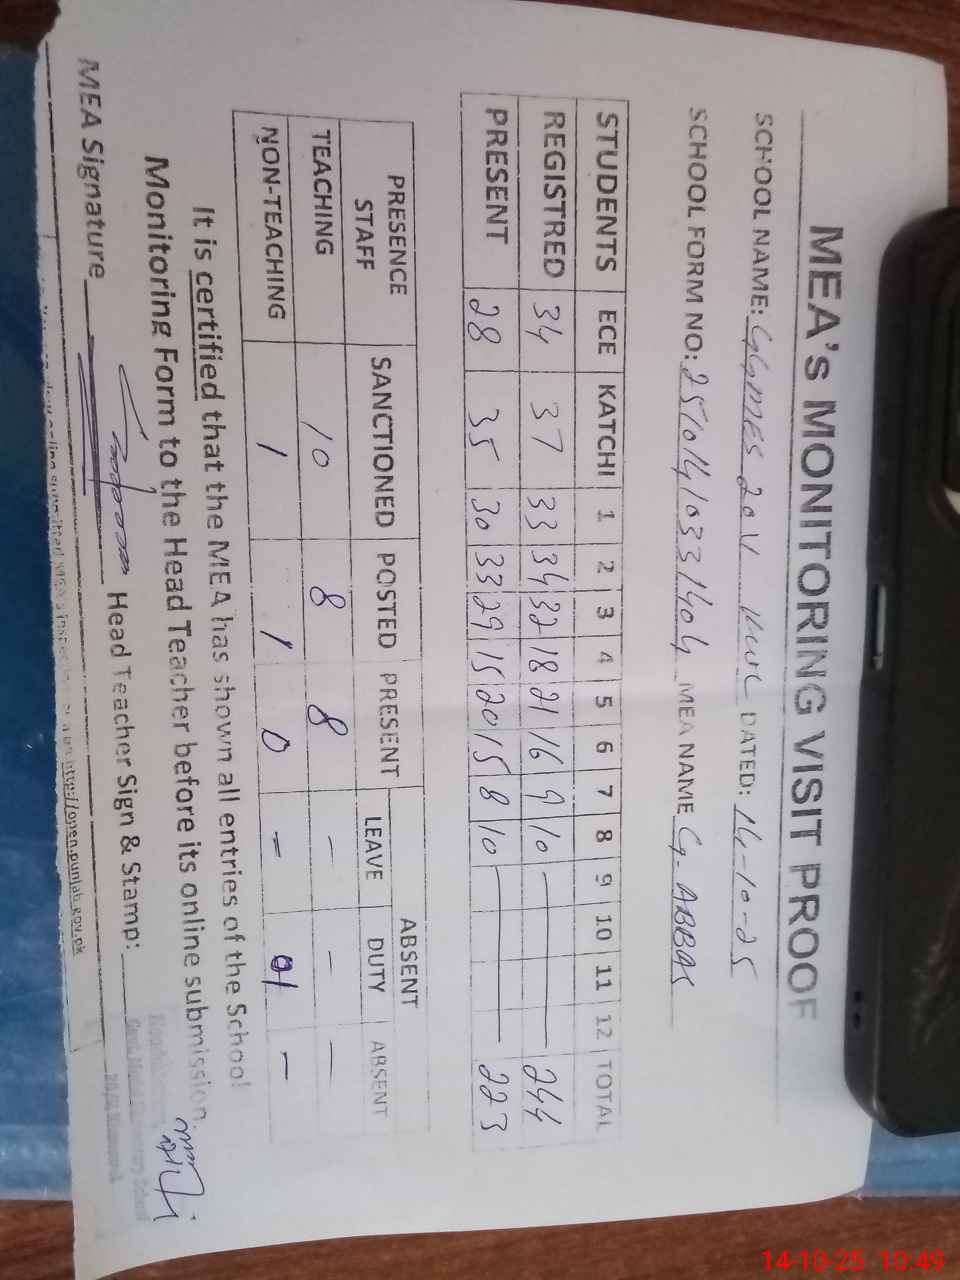 MEA'S MONITORING VISIT PROOF
SCHOOL NAME: GGMES 20V DATED: 14-10-25
SCHOOL FORM NO: 25101410331404 MEA NAME G. ABBAS
STUDENTS ECE KATCHI 1 2 3 4 5 6 7 8 9 10 11 12 TOTAL
REGISTRED 34 37 33 34 32 18 21 16 9 10 244
PRESENT 28 35 30 33 29 15 20 15 8 10 223
PRESENCE STAFF SANCTIONED POSTED PRESENT ABSENT
LEAVE DUTY ABSENT
TEACHING 10 8 8 - - -
NON-TEACHING 1 1 0 - 01 -
It is certified that the MEA has shown all entries of the School
Monitoring Form to the Head Teacher before its online submission.
MEA Signature Head Teacher Sign & Stamp:
http://open.punjab.gov.pk
14-10-25 10:49